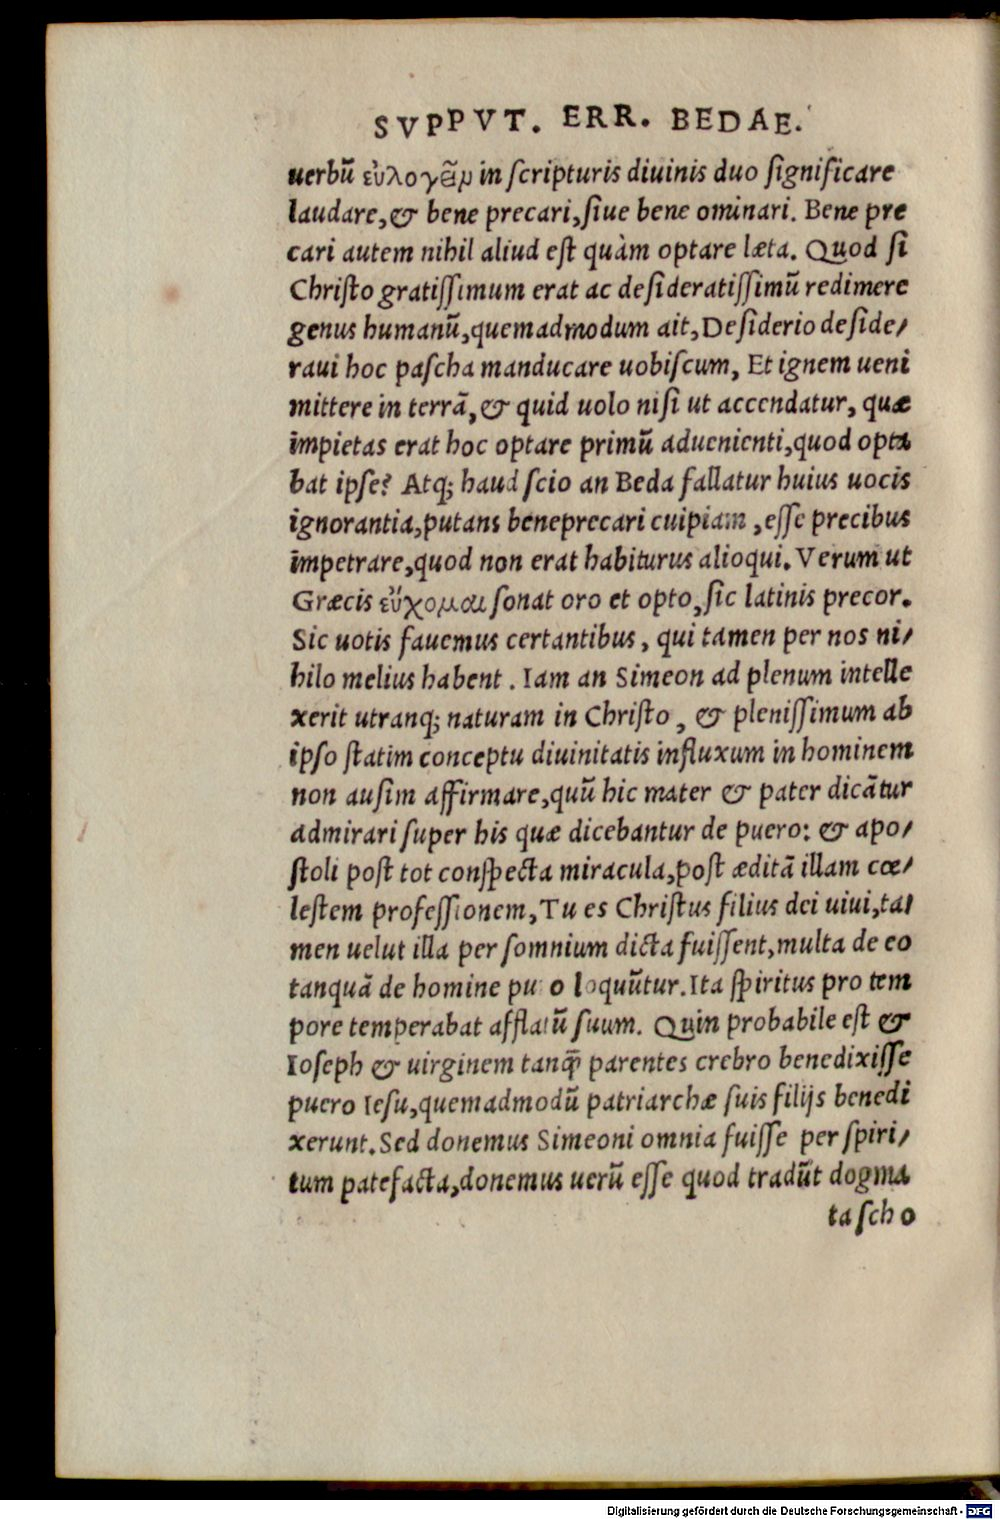 SVPPVT. ERR. BEDAE.
uerbũ εὐλογεῖν in ſcripturis diuinis duo ſignificare
laudare,& bene precari,ſiue bene ominari. Bene pre
cari autem nihil aliud eſt quàm optare læta. Quod ſi
Chriſto gratiſſimum erat ac deſideratiſſimũ redimere
genus humanũ,quemadmodum ait,Deſiderio deſide/
raui hoc paſcha manducare uobiſcum, Et ignem ueni
mittere in terrã,& quid uolo niſi ut accendatur, quæ
impietas erat hoc optare primũ aduenienti,quod opta
bat ipſe? Atq; haud ſcio an Beda fallatur huius uocis
ignorantia,putans beneprecari cuipiam ,eſſe precibus
impetrare,quod non erat habiturus alioqui. Verum ut
Græcis εὔχομαι ſonat oro et opto,ſic latinis precor.
Sic uotis fauemus certantibus, qui tamen per nos ni/
hilo melius habent . Iam an Simeon ad plenum intelle
xerit utranq; naturam in Chriſto , & pleniſſimum ab
ipſo ſtatim conceptu diuinitatis influxum in hominem
non auſim affirmare,quũ hic mater & pater dicãtur
admirari ſuper his quæ dicebantur de puero: & apo/
ſtoli poſt tot conſpecta miracula,poſt æditã illam cœ/
leſtem profeſſionem,Tu es Chriſtus filius dei uiui,ta/
men uelut illa per ſomnium dicta fuiſſent,multa de eo
tanquã de homine pu o loquũtur. Ita ſpiritus pro tem
pore temperabat afflatũ ſuum. Quin probabile eſt &
Ioſeph & uirginem tanq̃ parentes crebro benedixiſſe
puero Ieſu,quemadmodũ patriarchæ ſuis filijs benedi
xerunt. Sed donemus Simeoni omnia fuiſſe per ſpiri/
tum patefacta,donemus uerũ eſſe quod tradũt dogma
ta ſcho
Digitalisierung gefördert durch die Deutsche Forschungsgemeinschaft - DFG